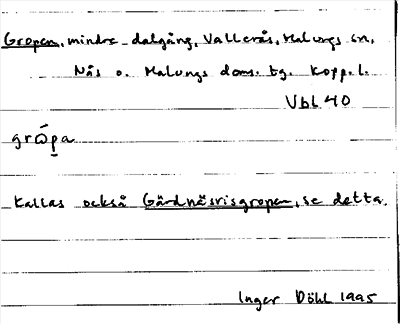 Gropen, mindre dalgång, Vallerås, Malungs sn,
Nås o. Malungs doms. tg. Kopp. l.
Vbl 40
grɷ́pa
Kallas också Gärdnäsvisgropen, se detta.
Inger Döhl 1995